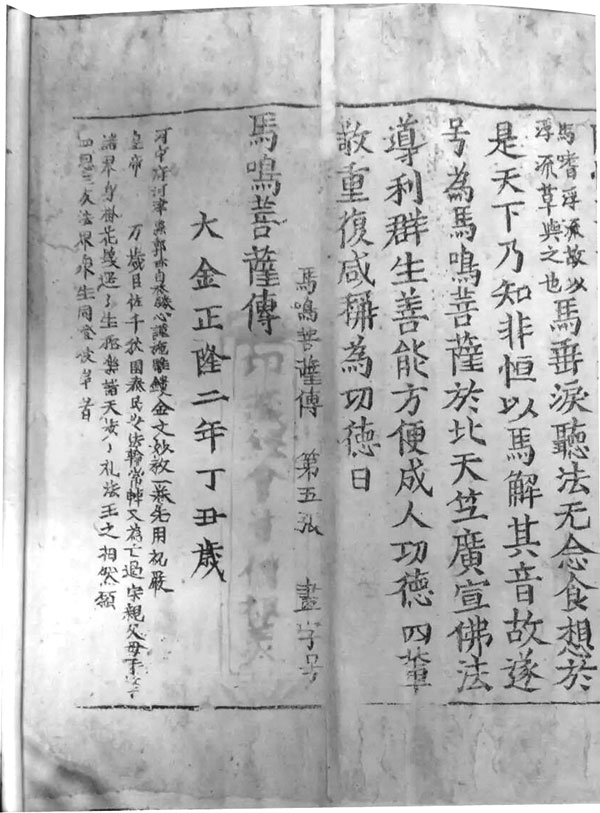 馬嗜浮流故以
浮流草與之也
馬垂淚聽法无念食想於
是天下乃知非恒以馬解其音故遂
号為馬鳴菩薩於北天竺廣宣佛法
導利群生善能方便成人功德四輩
敬重復咸稱為功德日
馬鳴菩薩傳 第五張 畫字号
馬鳴菩薩傳
大金正隆二年丁丑歲
河中府河津縣郭 自 心謹施雕 金文妙教一卷先用祝嚴
皇帝 万歲臣佐千秋国泰民安法輪常轉又為亡過宗親父母
界身掛花 生 樂諸天 礼法王之相然願
四恩三友法界衆生同登彼岸者